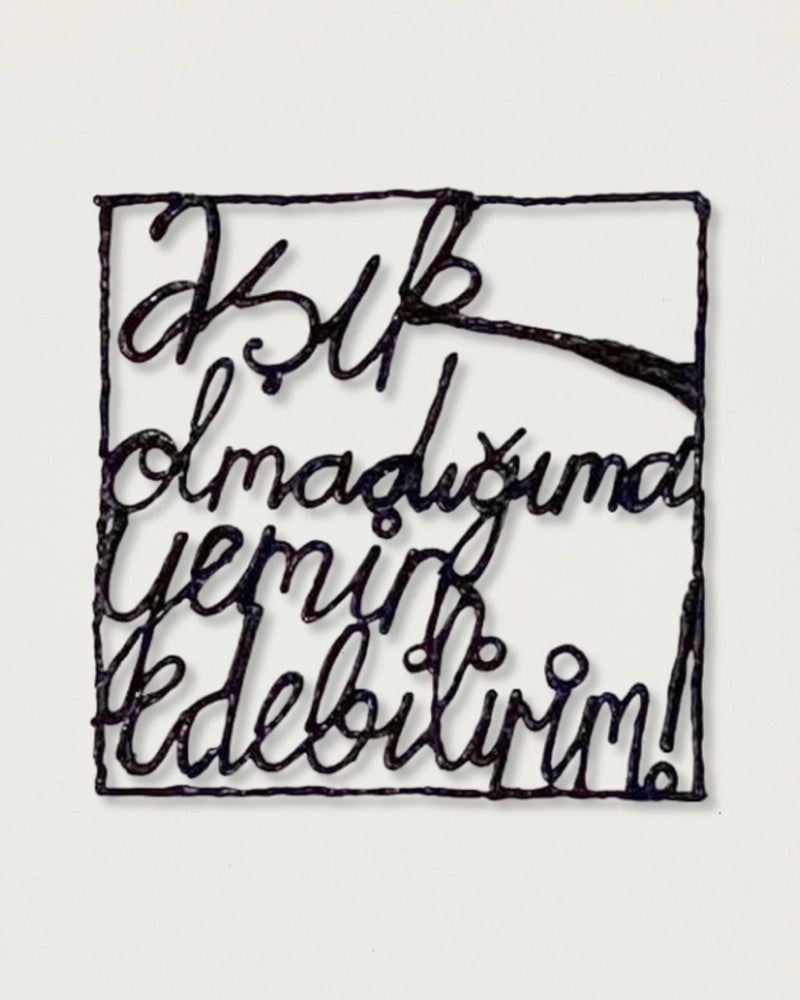 Aşık
olmadığıma
yemin
Edebilirim!